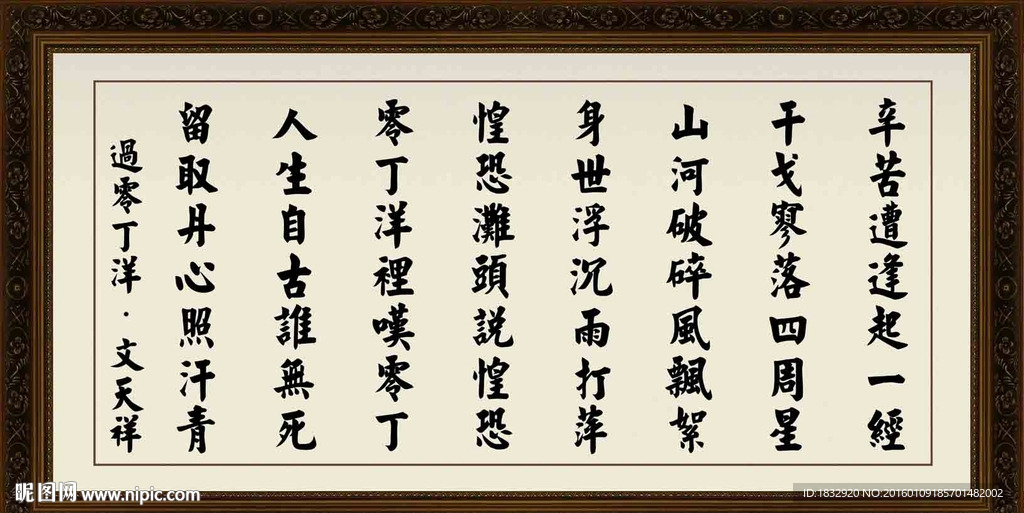 辛苦遭逢起一經
干戈寥落四周星
山河破碎風飄絮
身世浮沉雨打萍
惶恐灘頭説惶恐
零丁洋裡嘆零丁
人生自古誰無死
留取丹心照汗青
過零丁洋·文天祥
昵图网 www.nipic.com
ID:1832920 NO:20160109185701482002